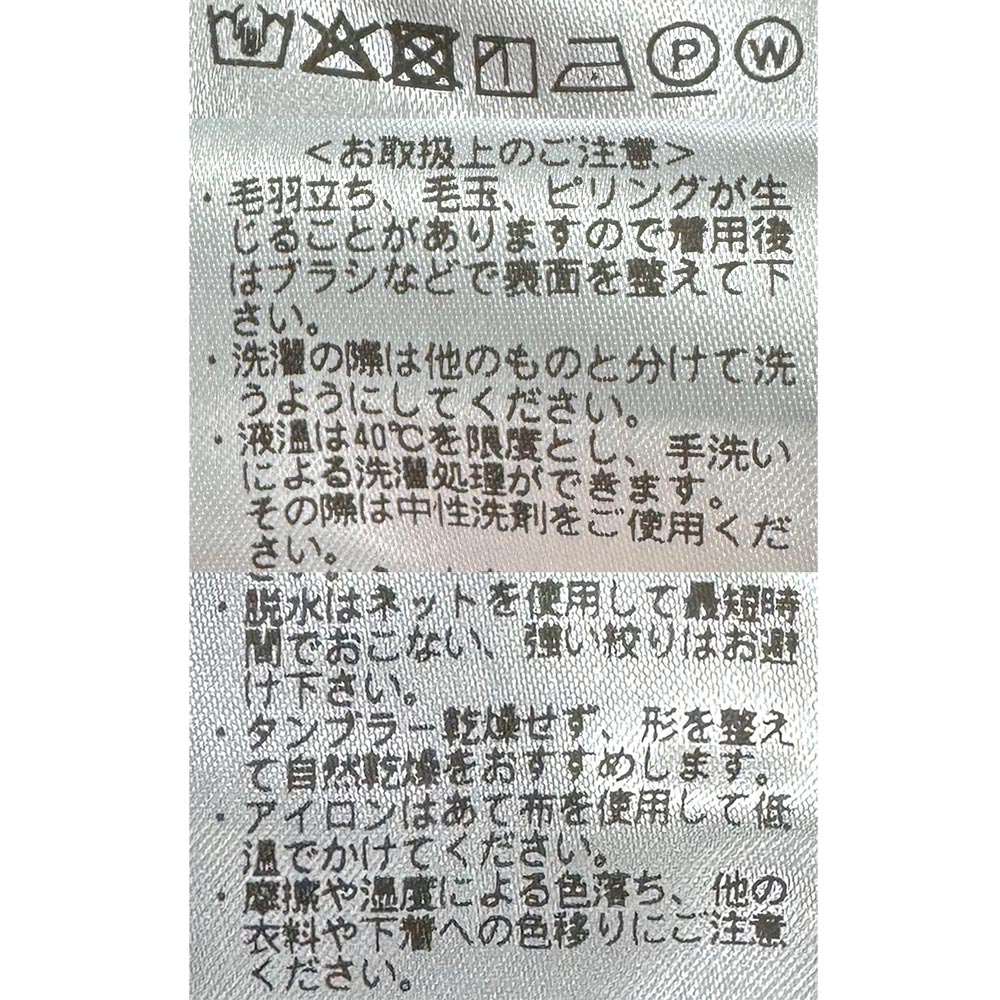 P W
<お取扱上のご注意>
・毛羽立ち、毛玉、ピリングが生
じることがありますので着用後
はブラシなどで表面を整えて下
さい。
・洗濯の際は他のものと分けて洗
うようにしてください。
・液温は40℃を限度とし、手洗い
による洗濯処理ができます。
その際は中性洗剤をご使用くだ
さい。
・脱水はネットを使用して最短時
間でおこない、強い絞りはお避
け下さい。
・タンブラー乾燥せず、形を整え
て自然乾燥をおすすめします。
・アイロンはあて布を使用して低
温でかけてください。
・摩擦や湿度による色落ち、他の
衣料や下着への色移りにご注意
ください。